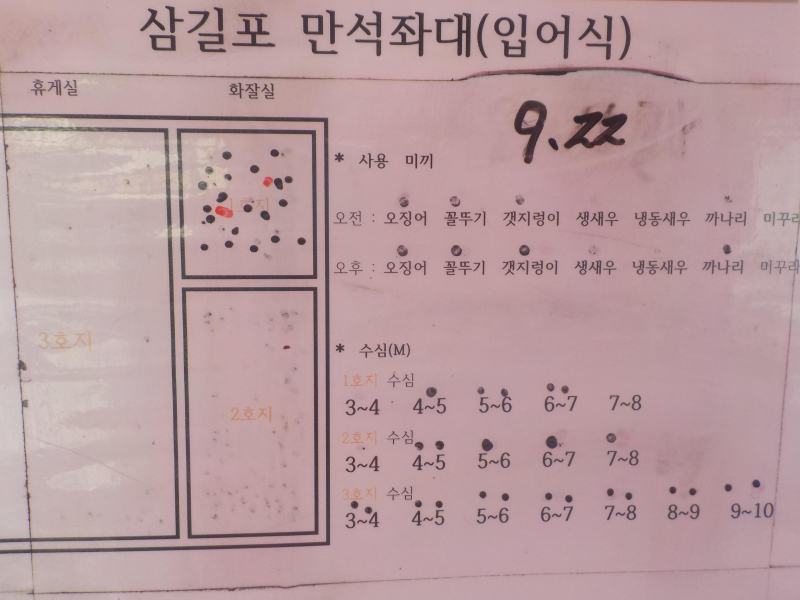 삼길포 만석좌대(입어식)
휴게실 화잘실
9.22
* 사용 미끼
오전 : 오징어 꼴뚜기 갯지렁이 생새우 냉동새우 까나리 미꾸라
오후 : 오징어 꼴뚜기 갯지렁이 생새우 냉동새우 까나리 미꾸라
1호지
3호지
2호지
* 수심(M)
1호지 수심
3~4 4~5 5~6 6~7 7~8
2호지 수심
3~4 4~5 5~6 6~7 7~8
3호지 수심
3~4 4~5 5~6 6~7 7~8 8~9 9~10